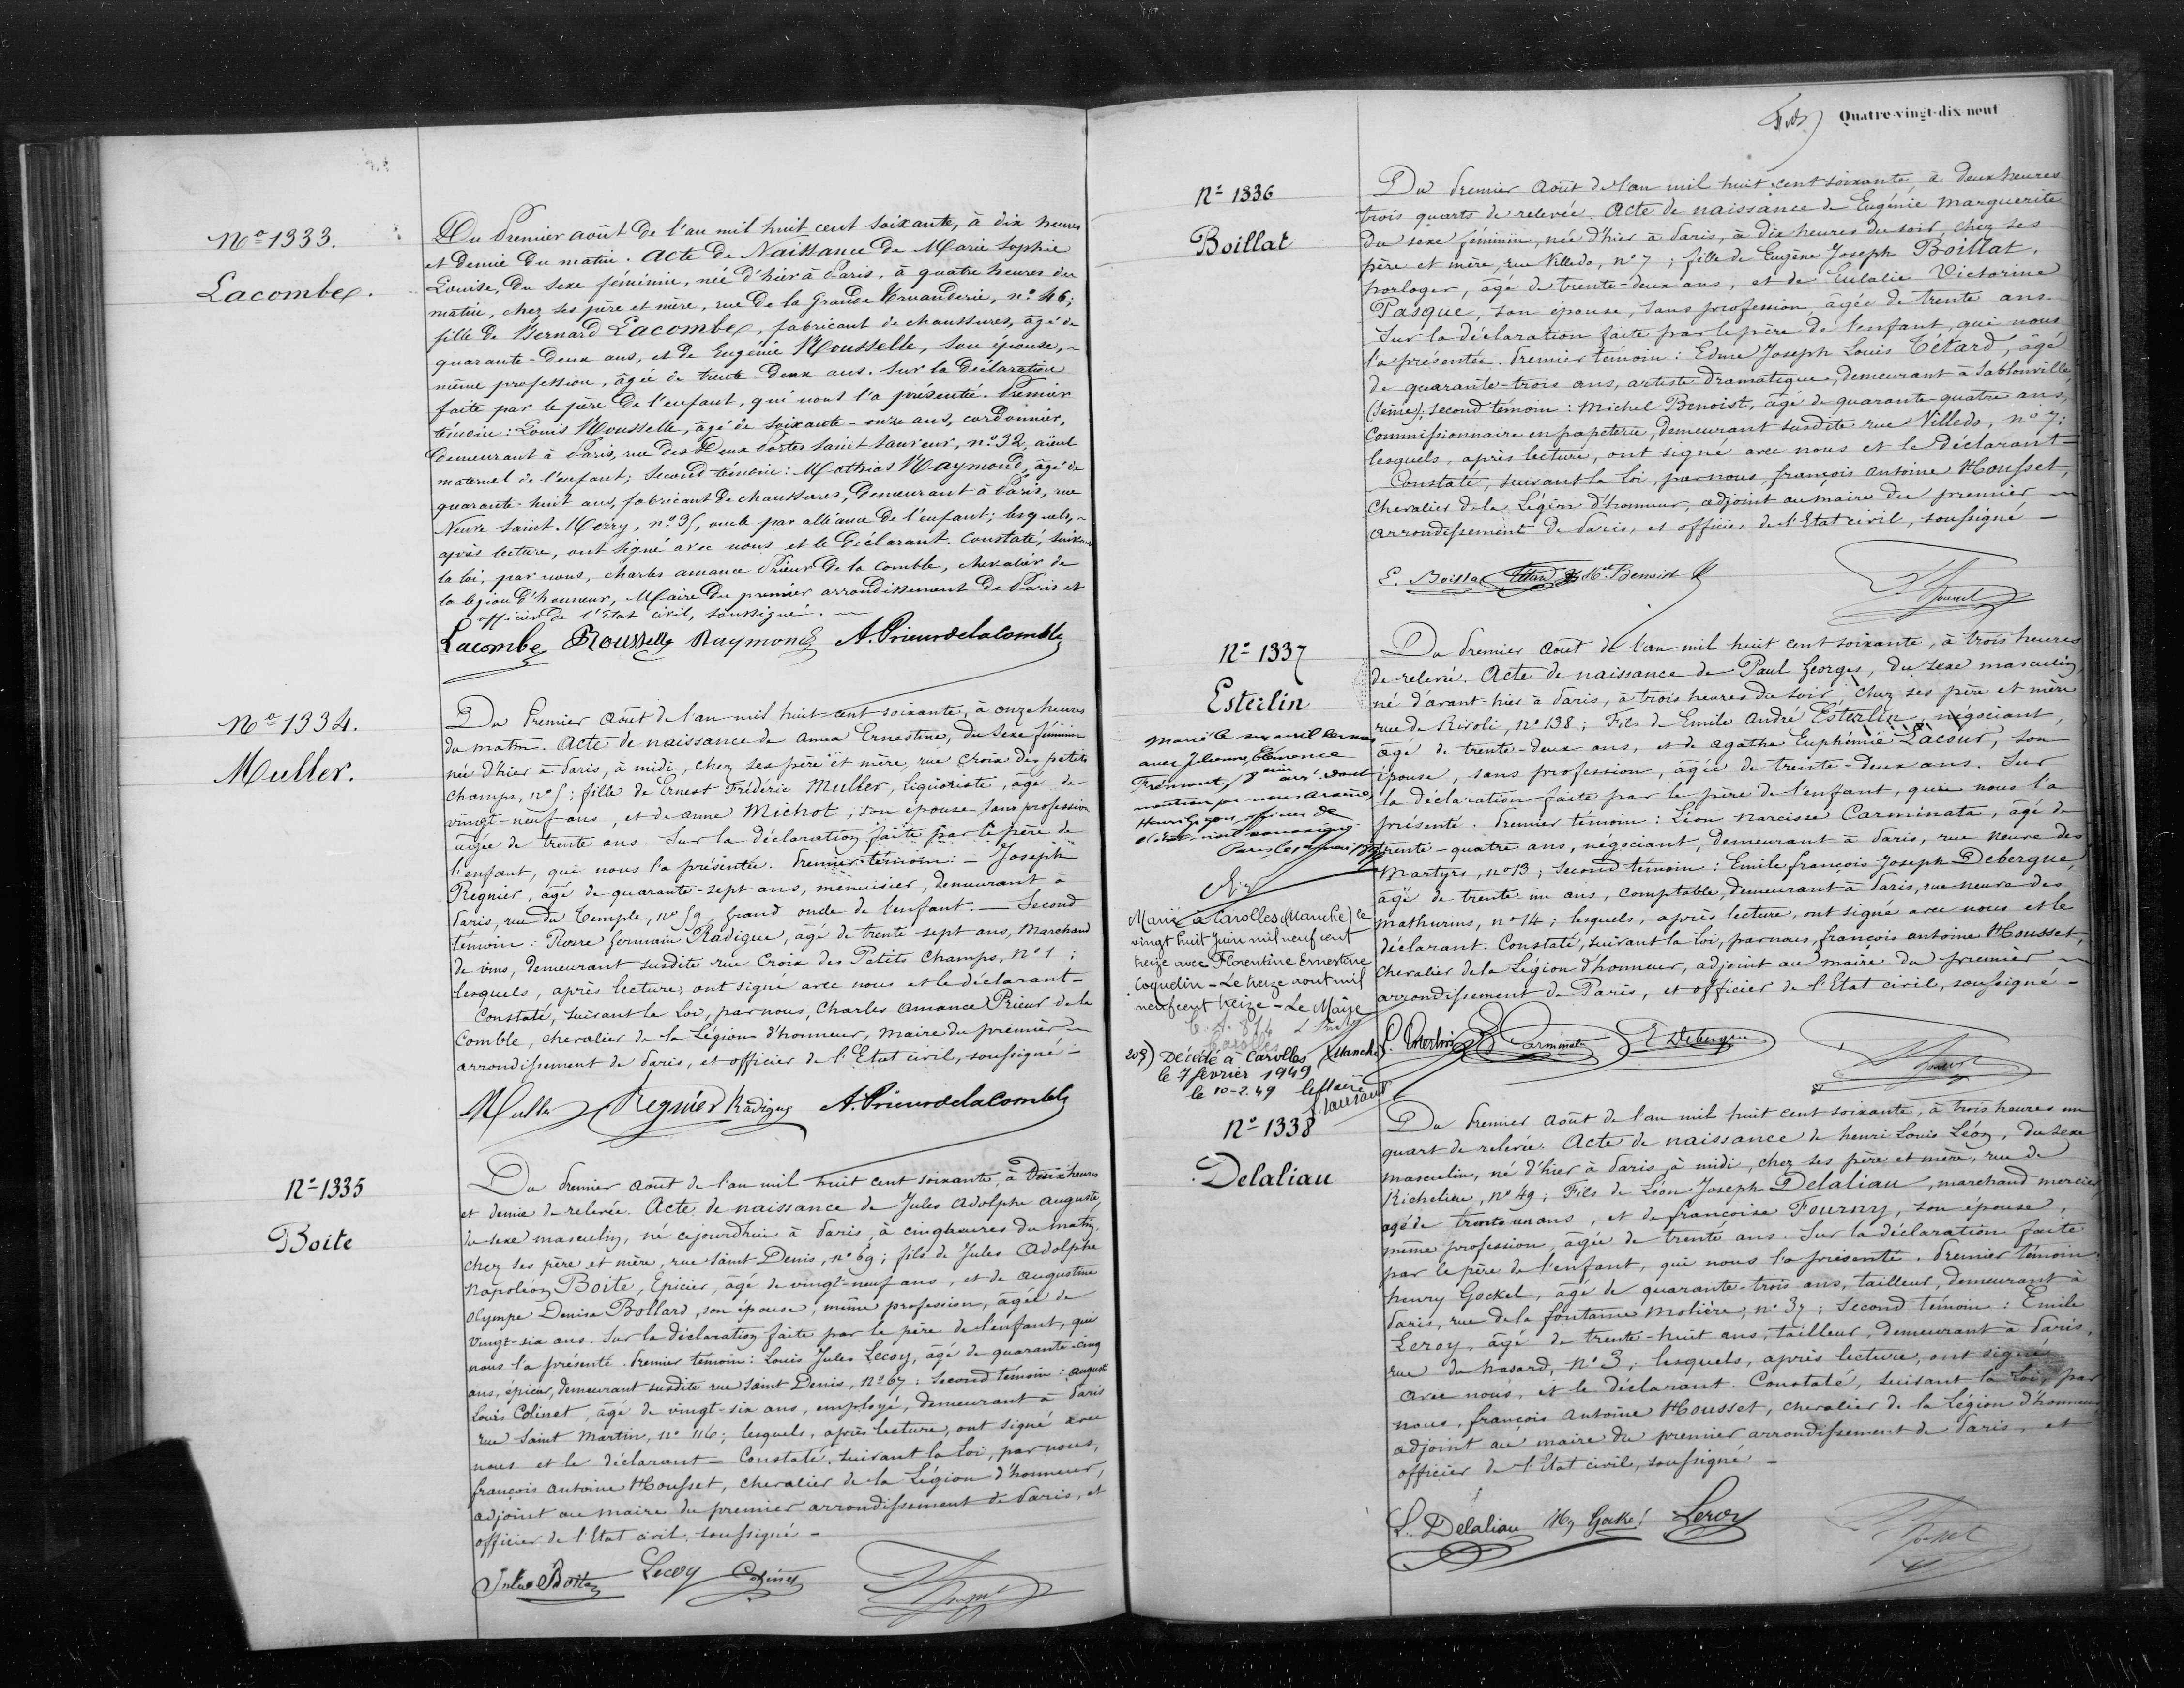 Nº 1333.
Lacombe.
Du Premier août de l'an mil huit cent soixante, à dix heures
et demie du matin. Acte de Naissance de Marie Sophie
Louise, du sexe féminin, née d'hier à Paris, à quatre heures du
matin, chez ses père et mère, rue de la Grande Truanderie, nº 46;
fille de Bernard Lacombe, fabricant de chaussures, âgé de
quarante-deux ans, et de Eugénie Rousselle, son épouse,
même profession, âgée de trente-deux ans. Sur la déclaration
faite par le père de l'enfant, qui nous l'a présenté. Premier
témoin: Louis Rousselle, âgé de soixante-onze ans, cordonnier,
demeurant à Paris, rue des Deux Portes Saint Sauveur, nº 32, aïeul
maternel de l'enfant; Second témoin: Mathias Raymond, âgé de
quarante-huit ans, fabricant de chaussures, demeurant à Paris, rue
Neuve Saint Merry, nº 35, oncle par alliance de l'enfant; lesquels,
après lecture, ont signé avec nous et le déclarant. Constaté, suivant
la loi, par nous, Charles Amance Prieur de la Comble, chevalier de
la légion d'honneur, Maire du premier arrondissement de Paris et
officier de l'Etat civil, soussigné.
Lacombe Rousselle Raymond A. Prieur de la Comble
Nº 1334.
Muller.
Du Premier Août de l'an mil huit cent soixante, à onze heures
du matin. Acte de naissance de Anna Ernestine, du sexe féminin
née d'hier à Paris, à midi, chez ses père et mère, rue Croix des petits
champs, nº 5; fille de Ernest Frédéric Muller, liquoriste, âgé de
vingt-neuf ans, et de Anne Michot, son épouse, sans profession
âgée de trente ans. Sur la déclaration faite par le père de
l'enfant, qui nous l'a présentée. Premier témoin: — Joseph
Regnier, âgé de quarante-sept ans, menuisier, demeurant à
Paris, rue du Temple, nº 59, grand oncle de l'enfant. — Second
témoin: Pierre Germain Radigue, âgé de trente-sept ans, Marchand
de vins, demeurant susdite rue Croix des Petits Champs, Nº 1;
lesquels, après lecture, ont signé avec nous et le déclarant —
Constaté, suivant la Loi, par nous, Charles Amance Prieur de la
Comble, chevalier de la Légion d'honneur, maire du premier
arrondissement de Paris, et officier de l'Etat civil, soussigné —
Muller Regnier Radigue A. Prieur de la Comble
Nº 1335
Boite
Du Premier Août de l'an mil huit cent soixante, à Deux heures
et demie de relevée. Acte de naissance de Jules Adolphe Auguste,
du sexe masculin, né cejourd'hui à Paris, à cinq heures du matin
chez ses père et mère, rue Saint Denis, nº 69; fils de Jules Adolphe
Napoléon Boite, Epicier, âgé de vingt-neuf ans, et de Augustine
Olympe Denise Bollard, son épouse, même profession, âgée de
vingt-six ans. Sur la déclaration faite par le père de l'enfant, qui
nous l'a présenté. Premier témoin: Louis Jules Lecoy, âgé de quarante-cinq
ans, épicier, demeurant susdite rue Saint Denis, Nº 67; Second témoin: Auguste
Louis Colinet, âgé de vingt-six ans, employé, demeurant à Paris
rue Saint Martin, nº 116; lesquels, après lecture, ont signé avec
nous et le déclarant — Constaté, suivant la Loi, par nous,
François Antoine Housset, chevalier de la Légion d'honneur,
adjoint au maire du premier arrondissement de Paris, et
officier de l'Etat civil, soussigné —
Jules Boite Lecoy Colinet
Quatre-vingt-dix-neuf
Nº 1336
Boillat
Du Premier Août de l'an mil huit cent soixante, à deux heures
trois quarts de relevée. Acte de naissance de Eugénie Marguerite
du sexe féminin, née d'hier à Paris, à dix heures du soir, chez ses
père et mère, rue Villedo, nº 7; fille de Eugène Joseph Boillat,
horloger, âgé de trente-deux ans, et de Eulalie Victorine
Pasque, son épouse, sans profession, âgée de trente ans.
Sur la déclaration faite par le père de l'enfant, qui nous
l'a présentée. Premier témoin: Edme Joseph Louis Tétard, âgé
de quarante-trois ans, artiste dramatique, demeurant à Sablonville
(Seine); second témoin: Michel Benoist, âgé de quarante-quatre ans,
commissionnaire en papeterie, demeurant susdite rue Villedo, nº 7;
lesquels, après lecture, ont signé avec nous et le déclarant —
Constaté, suivant la Loi, par nous, François Antoine Housset,
chevalier de la Légion d'honneur, adjoint au maire du premier
arrondissement de Paris, et officier de l'Etat civil, soussigné —
E. Boillat Tétard Benoist
Nº 1337
Esterlin
Du Premier Août de l'an mil huit cent soixante, à trois heures
de relevée. Acte de naissance de Paul Georges, du sexe masculin,
né d'avant-hier à Paris, à trois heures du soir, chez ses père et mère
rue de Rivoli, Nº 138; Fils de Emile André Esterlin, négociant,
âgé de trente-deux ans, et de Agathe Euphémie Lacour, son
épouse, sans profession, âgée de trente-deux ans. Sur
la déclaration faite par le père de l'enfant, qui nous l'a
présenté. Premier témoin: Léon Narcisse Carminata, âgé de
trente-quatre ans, négociant, demeurant à Paris, rue Neuve des
Martyrs, nº 13; Second témoin: Emile François Joseph Debergue,
âgé de trente un ans, comptable, demeurant à Paris, rue neuve des
mathurins, nº 14; lesquels, après lecture, ont signé avec nous et le
déclarant. Constaté, suivant la Loi, par nous, François Antoine Housset,
chevalier de la Légion d'honneur, adjoint au maire du premier
arrondissement de Paris, et officier de l'Etat civil, soussigné —
Esterlin Carminata E Debergue
Marié le six avril
avec Julienne Clémence
Frémont, arrt. Dont
mention par nous
officier de
l'état civil soussigné
Marié à Carolles (Manche) le
vingt huit juin mil neuf cent
treize avec Florentine Ernestine
Coquelin — Le treize août mil
neuf cent treize — Le Maire
Carolles
Décédé à Carolles (Manche)
le 7 février 1949
le 10-2-49 le Maire
Nº 1338
Delaliau
Du Premier Août de l'an mil huit cent soixante, à trois heures un
quart de relevée. Acte de naissance de Henri Louis Léon, du sexe
masculin, né d'hier à Paris, à midi, chez ses père et mère, rue de
Richelieu, nº 49; Fils de Léon Joseph Delaliau, marchand mercier
âgé de trente un ans, et de Françoise Fourny, son épouse,
même profession, âgée de trente ans. Sur la déclaration faite
par le père de l'enfant, qui nous l'a présenté. Premier témoin:
henry Gockel, âgé de quarante-trois ans, tailleur, demeurant à
Paris, rue de la fontaine Molière, nº 37; Second témoin: Emile
Leroy, âgé de trente-huit ans, tailleur, demeurant à Paris,
rue du hasard, Nº 3; lesquels, après lecture, ont signé
avec nous, et le déclarant. Constaté, suivant la Loi, par
nous, François Antoine Housset, chevalier de la Légion d'honneur
adjoint au maire du premier arrondissement de Paris, et
officier de l'Etat civil, soussigné —
L. Delaliau Hy Gockel Leroy